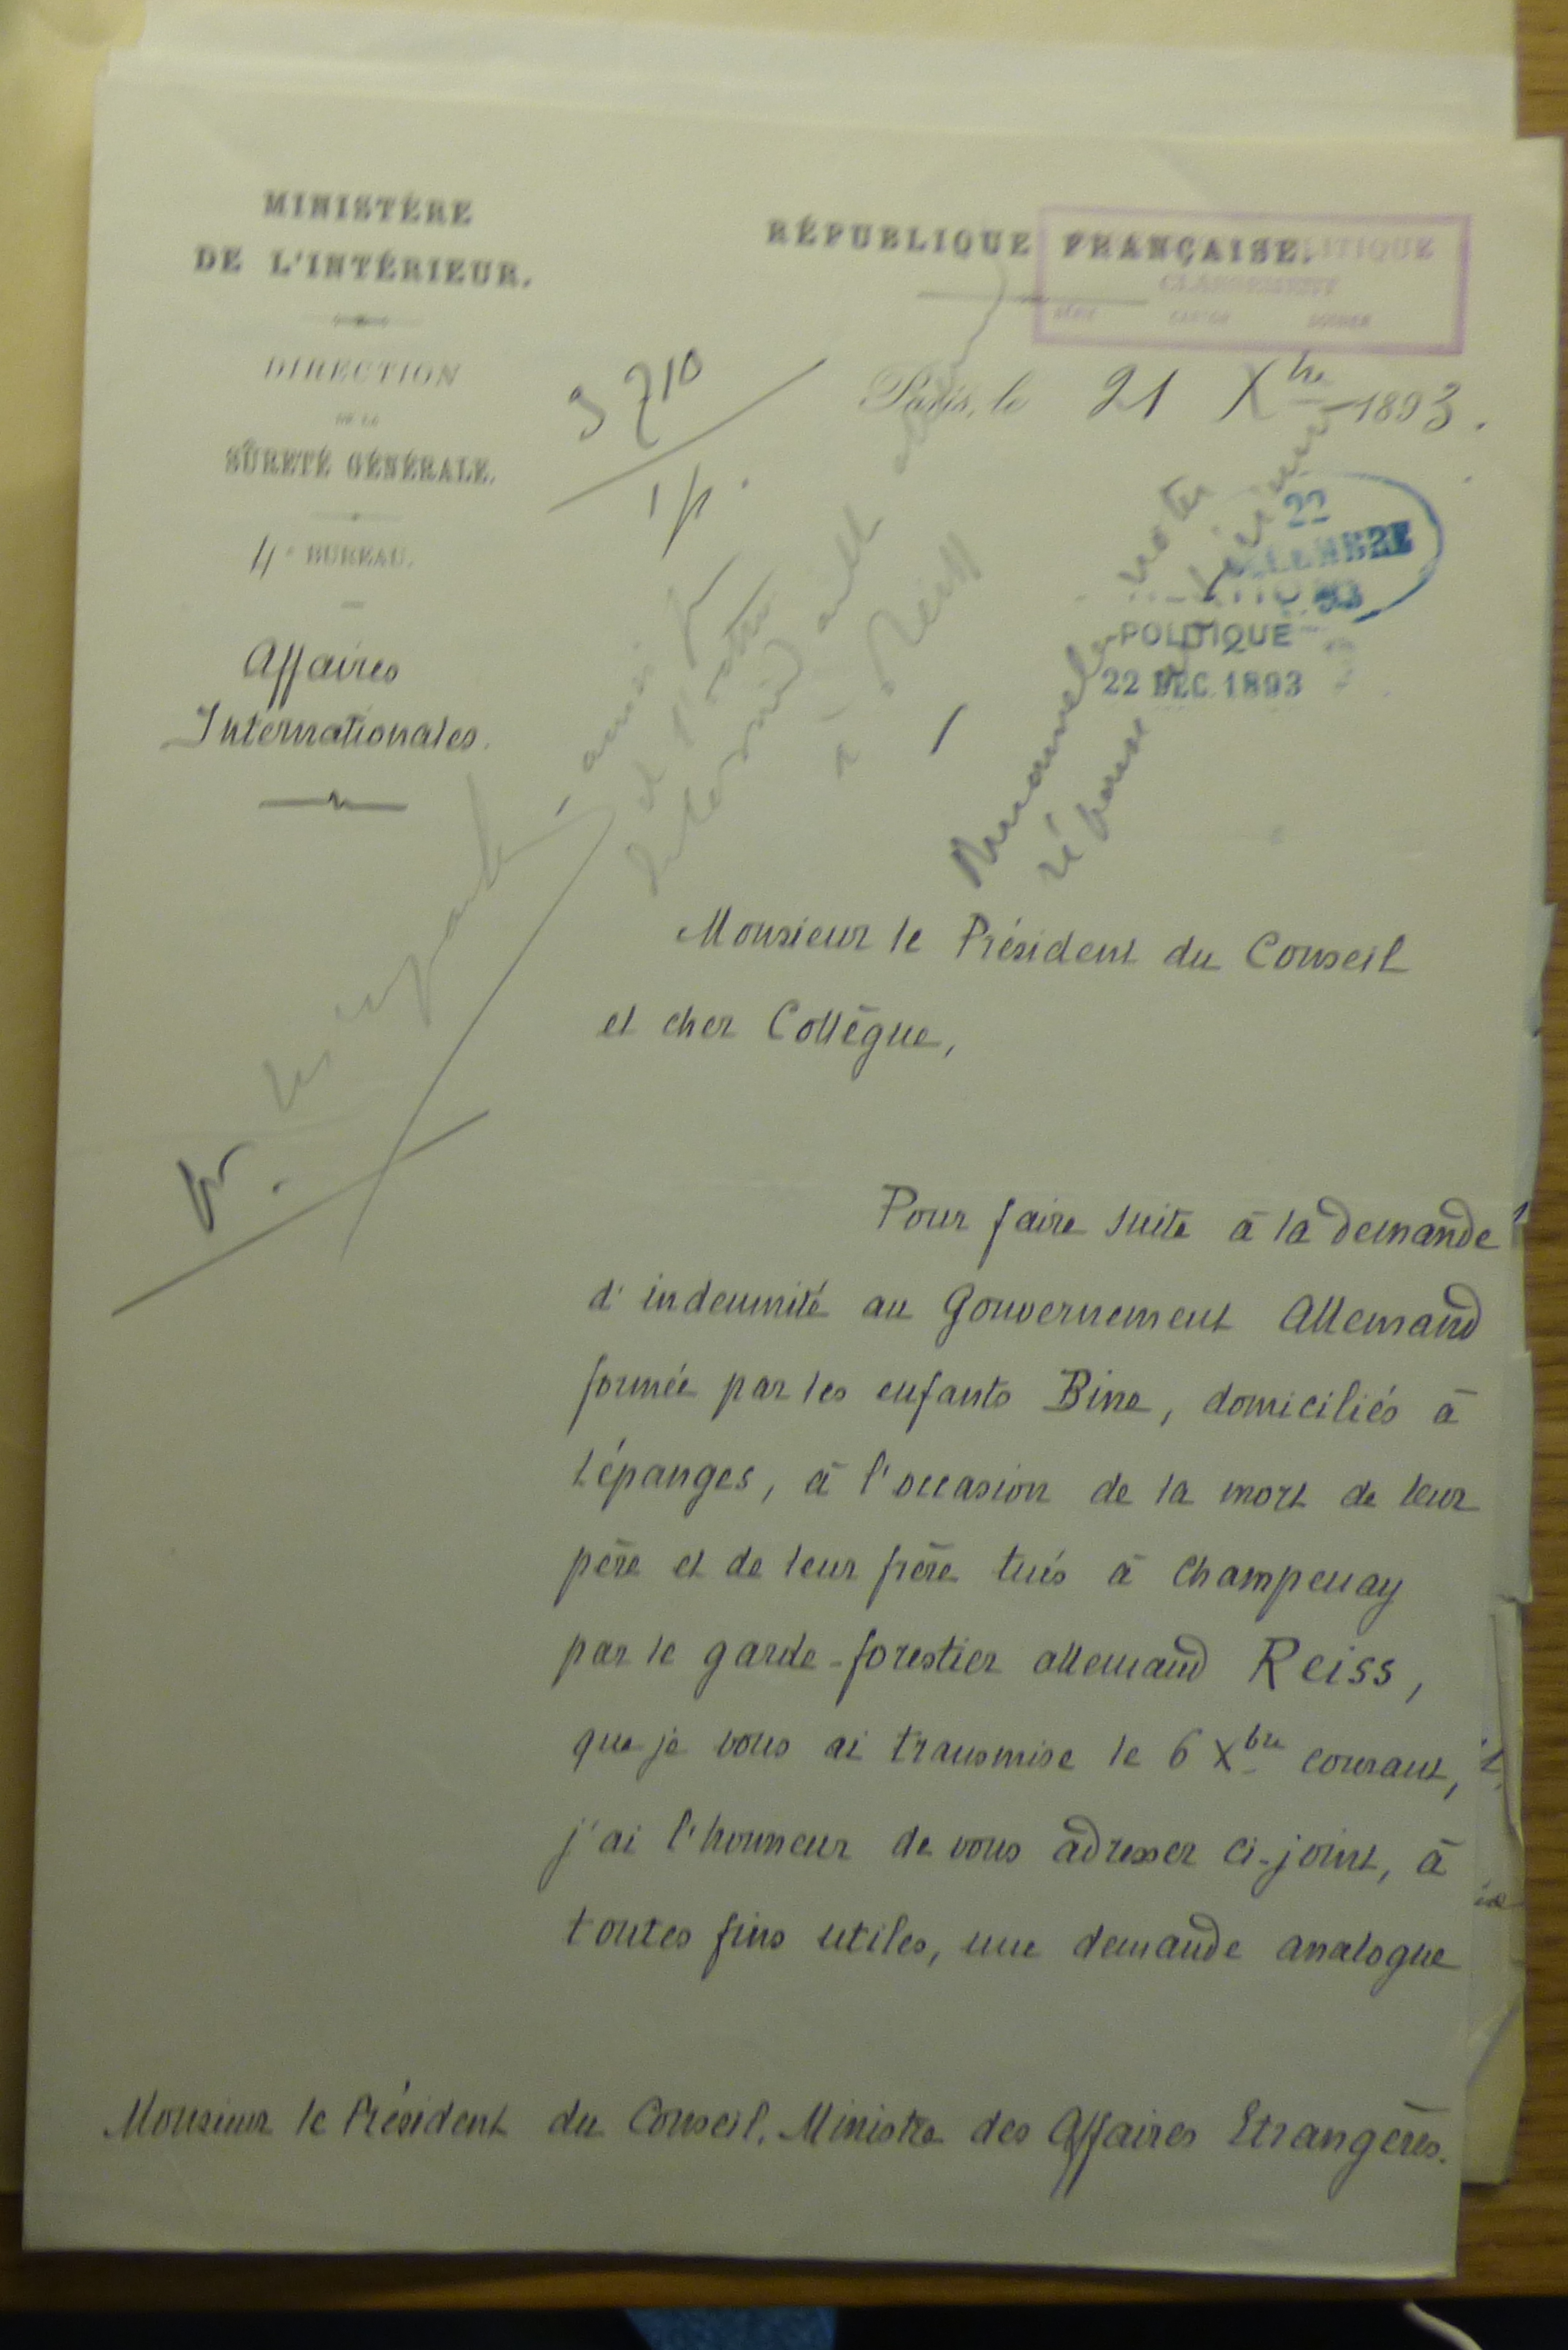 MINISTÈRE
DE L'INTÉRIEUR.
DIRECTION
DE LA
SÛRETÉ GÉNÉRALE.
4e BUREAU.
Affaires
Internationales.
RÉPUBLIQUE FRANÇAISE.
CLASSEMENT
SÉRIE CARTON DOSSIER
Paris, le 21 Xbre 1893.
1 p.
22
93
POLITIQUE
22 DEC. 1893
à Reiss
réponse
Monsieur le Président du Conseil
et cher Collègue,
Pour faire suite à la demande
d'indemnité au Gouvernement Allemand
formée par les enfants Bine, domiciliés à
Lépanges, à l'occasion de la mort de leur
père et de leur frère tués à Champenay
par le garde-forestier allemand Reiss,
que je vous ai transmise le 6 Xbre courant,
j'ai l'honneur de vous adresser ci-joint, à
toutes fins utiles, une demande analogue
Monsieur le Président du Conseil, Ministre des Affaires Etrangères.